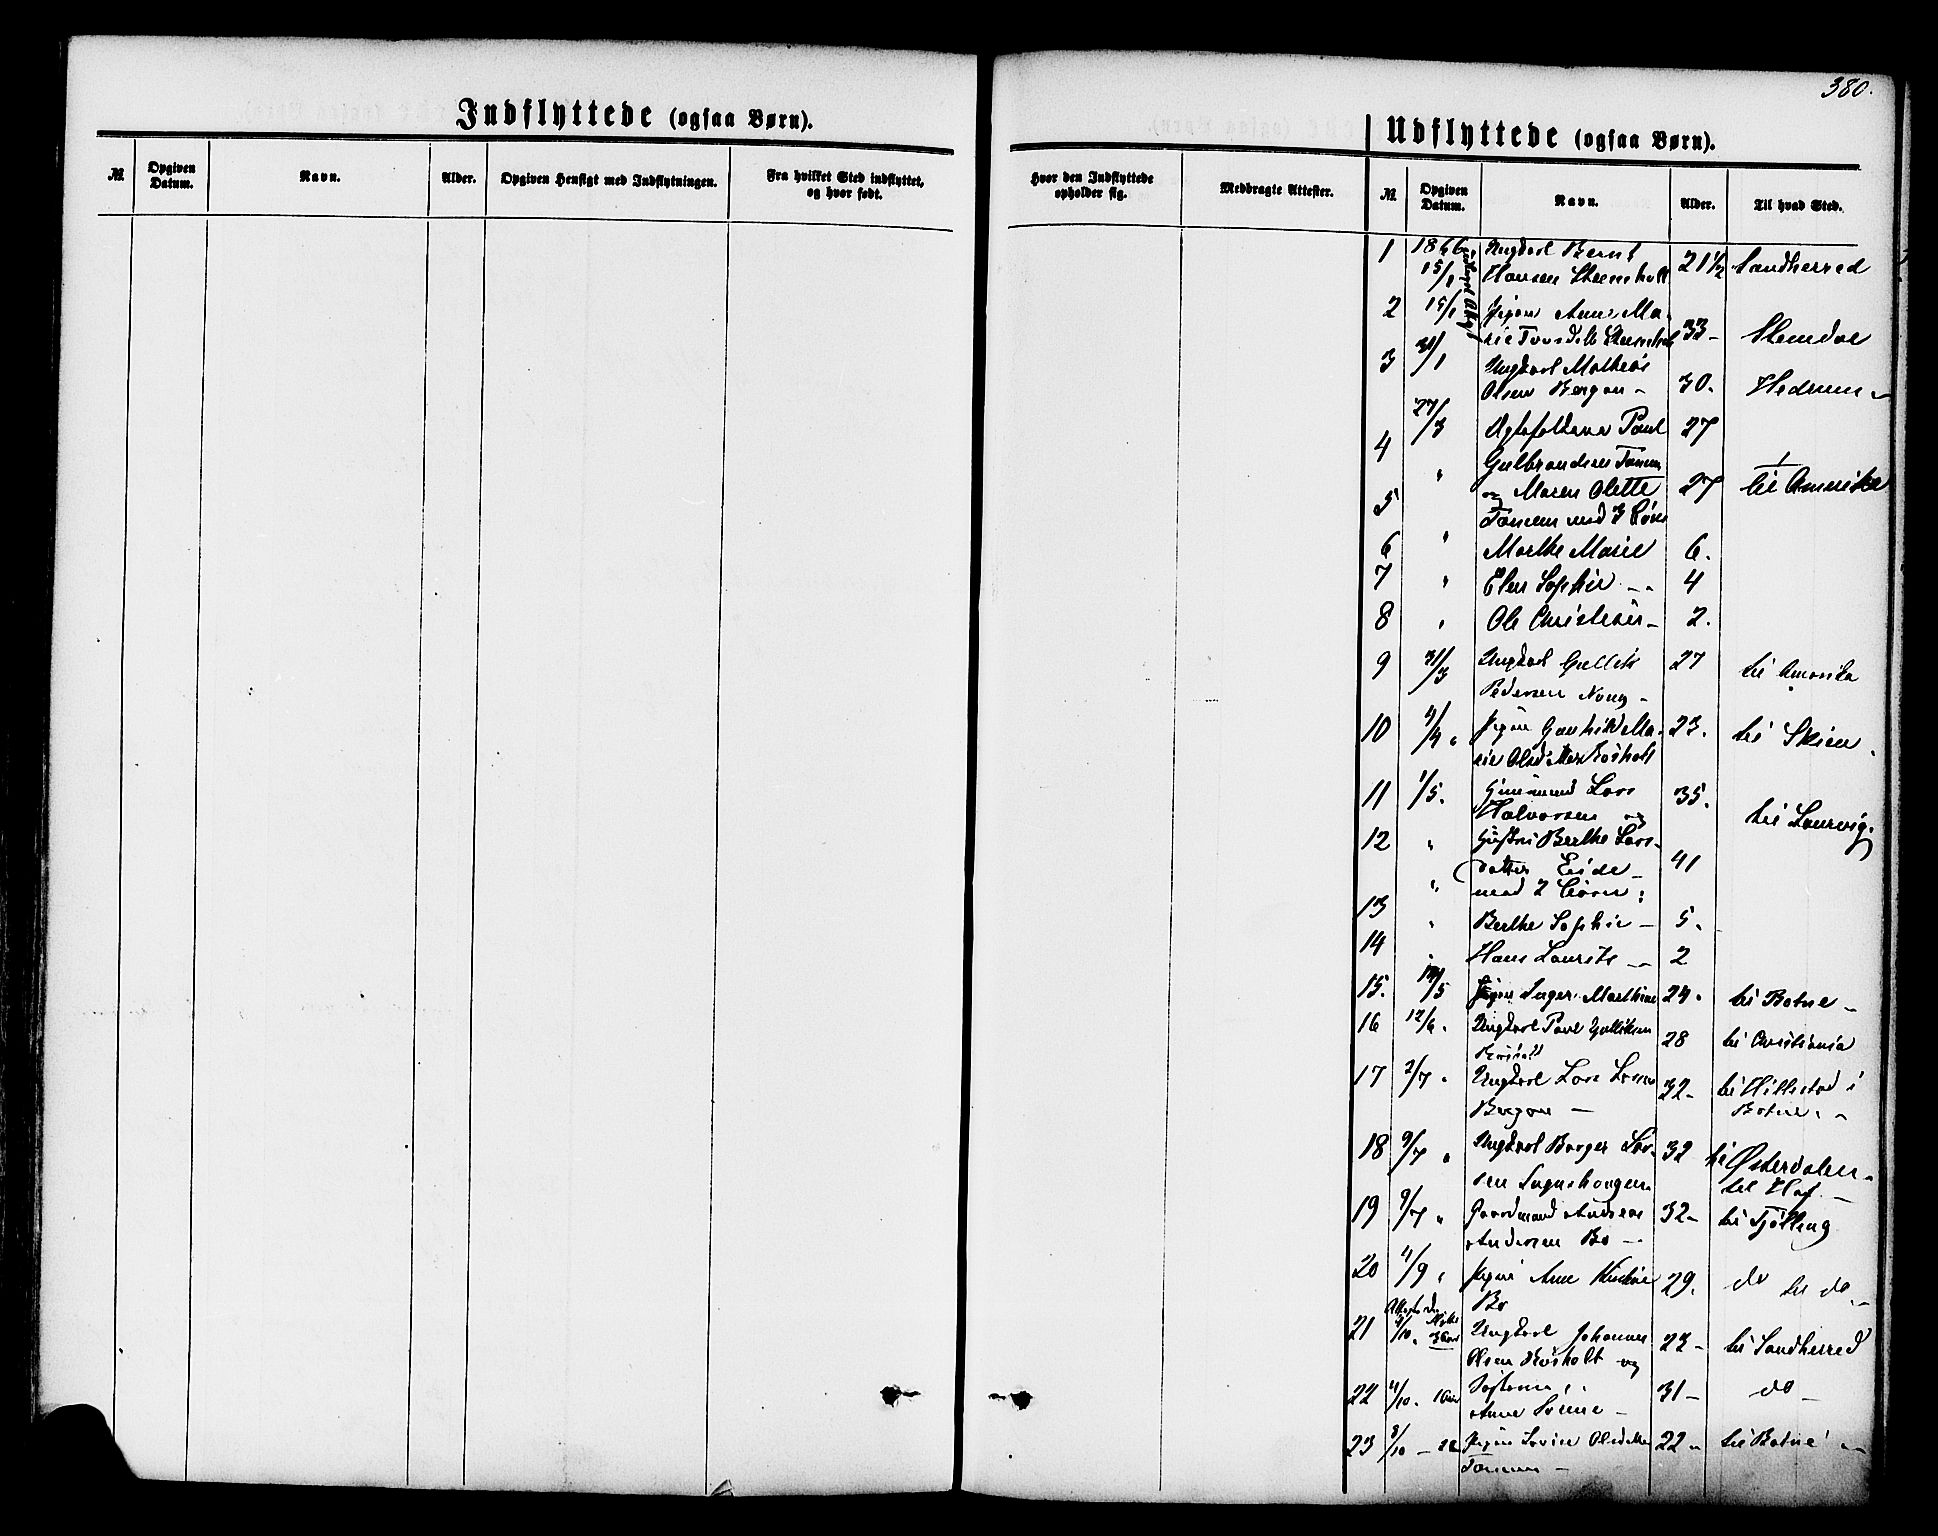 380.
Indflyttede (ogsaa Børn).
№ Opgiven Datum. Navn. Alder. Opgiven Hensigt med Indflytningen. Fra hvilket Sted indflyttet, og hvor født.
Hvor den Indflyttede opholder sig. Medbragte Attester.
Udflyttede (ogsaa Børn).
№ Opgiven Datum. Navn. Alder. Til hvad Sted.
1 1866 Ungkarl Bernt
15/1 Hansen 21 1/2 Sandherred
2 15/1 Pigen Anne Ma-
rie 33-
3 31/1 Ungkarl Mathias
Olsen Bergan - 30. Hedrum -
27/3 Ægtefolkene Paul 27
4 Gulbrandsen
5 " og Maren Olette 27 til Amerika
med 3 Børn
6 " Marthe Marie 6.
7 " Elen Sophie - 4
8 " Ole Christian - 2.
9 31/3 Ungkarl Gullik 27 til Amerika
Pedersen
10 4/4 " Pigen Gunhild Ma- 23. til Skien.
rie Røsholt
11 1/5. Lars 35.
Halvorsen og til Laurvig.
12 " Hustru Berthe Lars-
datter Eide - 41
" med 2 Børn:
13 " Berthe Sophie - 5.
14 " Hans Laurits - 2
15. /5 Pigen Inger Marthine 24. til Botne -
16 12/6. Ungkarl Paul Gulliksen 28 til Christiania
17 2/7 " Ungkarl Lars Larsen 32- til Hillestad i
Bergan - Botne. -
18 9/7 " Ungkarl Borger Lar- 32 til Østerdalen -
sen til Hof. -
19 9/7 " Gaardmand Andreas 32- til Tjølling
Andersen Bø -
20 4/9 " Pigen Anne 29. do til do. -
Bø
21 /10. Ungkarl Johannes 22- til Sandherred
Olsen Røsholt og
22 4/10. Søsteren 31- do -
Anne -
23 8/10 - Pigen 22- til Botne -